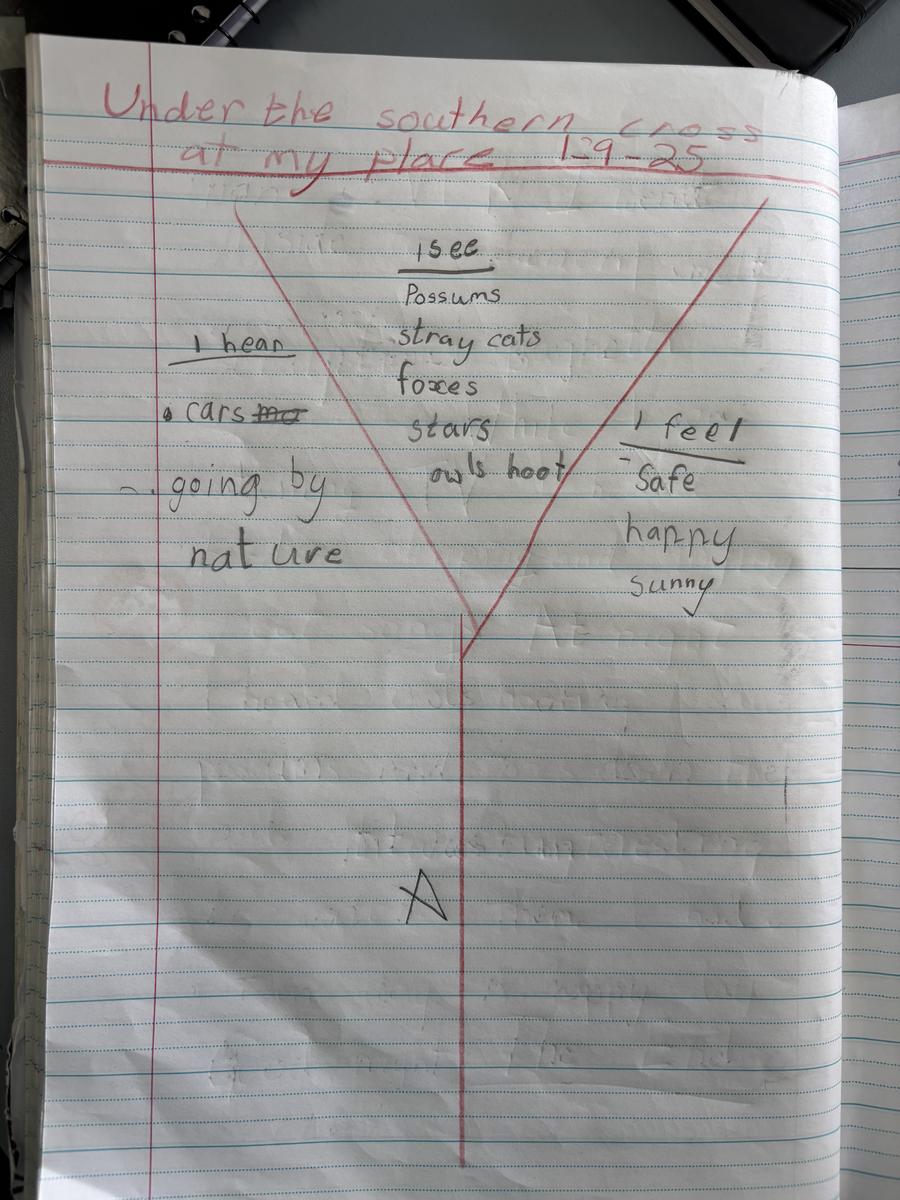 Under the southern cross
at my place 1-9-25
I see
Possums
stray cats
foxes
stars
owls hoot
I hear
• cars
going by
nature
I feel
- Safe
happy
sunny